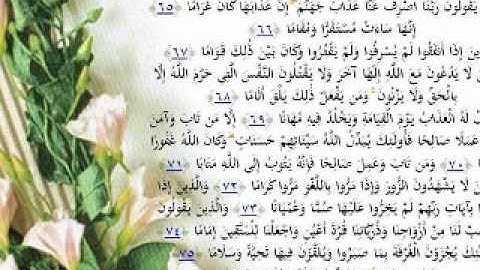 يَقُولُونَ رَبَّنَا اصْرِفْ عَنَّا عَذَابَ جَهَنَّمَ إِنَّ عَذَابَهَا كَانَ غَرَامًا ﴿٦٥﴾
إِنَّهَا سَاءَتْ مُسْتَقَرًّا وَمُقَامًا ﴿٦٦﴾
إِذَا أَنْفَقُوا لَمْ يُسْرِفُوا وَلَمْ يَقْتُرُوا وَكَانَ بَيْنَ ذَلِكَ قَوَامًا ﴿٦٧﴾
لَا يَدْعُونَ مَعَ اللَّهِ إِلَهًا آخَرَ وَلَا يَقْتُلُونَ النَّفْسَ الَّتِي حَرَّمَ اللَّهُ إِلَّا
بِالْحَقِّ وَلَا يَزْنُونَ وَمَنْ يَفْعَلْ ذَلِكَ يَلْقَ أَثَامًا ﴿٦٨﴾
لَهُ الْعَذَابُ يَوْمَ الْقِيَامَةِ وَيَخْلُدْ فِيهِ مُهَانًا ﴿٦٩﴾ إِلَّا مَنْ تَابَ وَآمَنَ
عَمَلًا صَالِحًا فَأُولَئِكَ يُبَدِّلُ اللَّهُ سَيِّئَاتِهِمْ حَسَنَاتٍ وَكَانَ اللَّهُ غَفُورًا
﴿٧٠﴾ وَمَنْ تَابَ وَعَمِلَ صَالِحًا فَإِنَّهُ يَتُوبُ إِلَى اللَّهِ مَتَابًا ﴿٧١﴾
لَا يَشْهَدُونَ الزُّورَ وَإِذَا مَرُّوا بِاللَّغْوِ مَرُّوا كِرَامًا ﴿٧٢﴾ وَالَّذِينَ إِذَا
بِآيَاتِ رَبِّهِمْ لَمْ يَخِرُّوا عَلَيْهَا صُمًّا وَعُمْيَانًا ﴿٧٣﴾ وَالَّذِينَ يَقُولُونَ
لَنَا مِنْ أَزْوَاجِنَا وَذُرِّيَّاتِنَا قُرَّةَ أَعْيُنٍ وَاجْعَلْنَا لِلْمُتَّقِينَ إِمَامًا ﴿٧٤﴾
يُجْزَوْنَ الْغُرْفَةَ بِمَا صَبَرُوا وَيُلَقَّوْنَ فِيهَا تَحِيَّةً وَسَلَامًا ﴿٧٥﴾